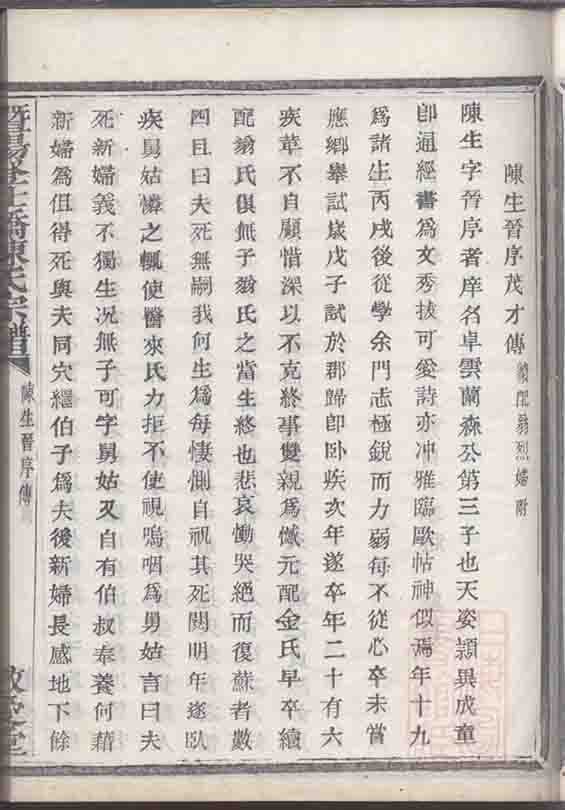 陳生晉序茂才傳 繼配翁烈婦附
陳生字晉序者庠名卓雲蘭森公第三子也天姿頴異成童
卽通經書爲文秀拔可愛詩亦冲雅臨歐帖神似焉年十九
爲諸生丙戌後從學余門志極銳而力弱每不從心卒未嘗
應鄉舉試歲戊子試於郡歸卽臥疾次年遂卒年二十有六
疾革不自顧惜深以不克終事雙親爲憾元配金氏早卒續
配翁氏俱無子翁氏之當生終也悲哀慟哭絕而復蘇者數
四且曰夫死無嗣我何生爲每悽惻自視其死關明年遂臥
疾舅姑憐之輒使醫來氏力拒不使視嗚咽爲舅姑言曰夫
死新婦義不獨生况無子可字舅姑又自有伯叔奉養何藉
新婦爲但得死與夫同穴繼伯子爲夫後新婦長感地下餘
陳氏宗譜
陳生晉序傳